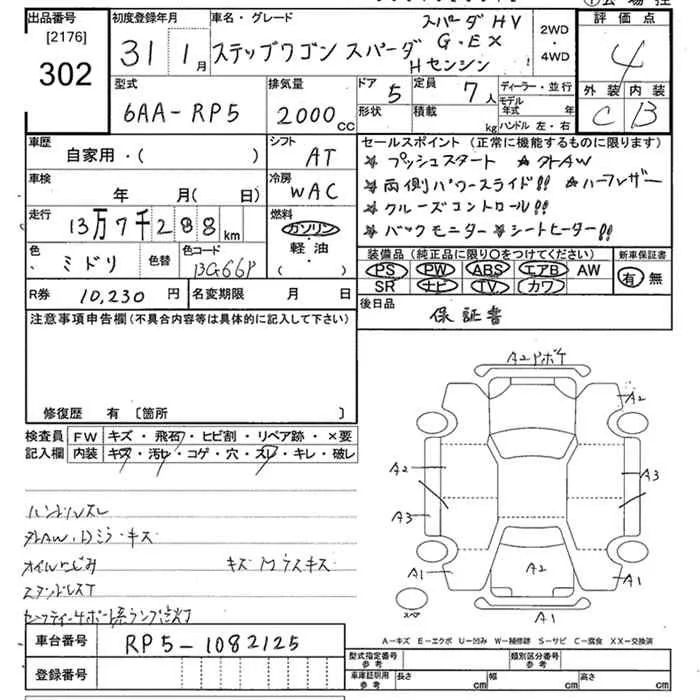 出品番号 初度登録年月 車名・グレード スパーダ HV 評価点
[2176] 31 1月 ステップワゴン スパーダ G・EX 2WD・4WD 4
302 Hセンシン
型式 排気量 ドア 5 定員 7人 ディーラー・並行 外装 内装
6AA-RP5 2000cc 形状 積載 kg モデル年式 年 C B
ハンドル 左・右
車歴 シフト セールスポイント(正常に機能するものに限ります)
自家用・( ) AT ☆ プッシュスタート ☆外AW
車検 冷房 ☆ 両側パワースライド!! ☆ハーフレザー
年 月( 日) WAC ☆ クルーズコントロール!!
走行 燃料 ☆ バックモニター ☆シートヒーター!!
13万7千288km ガソリン
色 色替 色コード 軽・油 装備品(純正品に限り○をつけてください) 新車保証書
ミドリ BG66P ・( ) PS PW ABS エアB AW 有 無
SR ナビ TV カワ
R券 10,230円 名変期限 月 日 後日品
注意事項申告欄(不具合内容等は具体的に記入して下さい) 保証書
修復歴 有〔箇所 〕
検査員 FW キズ・飛石・ヒビ割・リペア跡・×要
記入欄 内装 キズ・汚レ・コゲ・穴・スレ・キレ・破レ
A2 A2
A2 A3
A3
A1 A2 A1
スペア A1
ハンドルスレ
外AW,ドミラーキズ
キズ Mウスキズ
A-キズ E-エクボ U-凹み W-補修跡 S-サビ C-腐食 XX-交換済
車台番号 RP5-1082125 型式指定番号 参考 類別区分番号 参考
登録番号 車庫証明用 参考 長さ cm 幅 cm 高さ cm